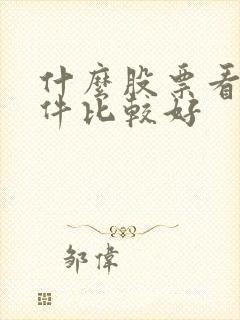 什麼股票看
件比較好
邹偉